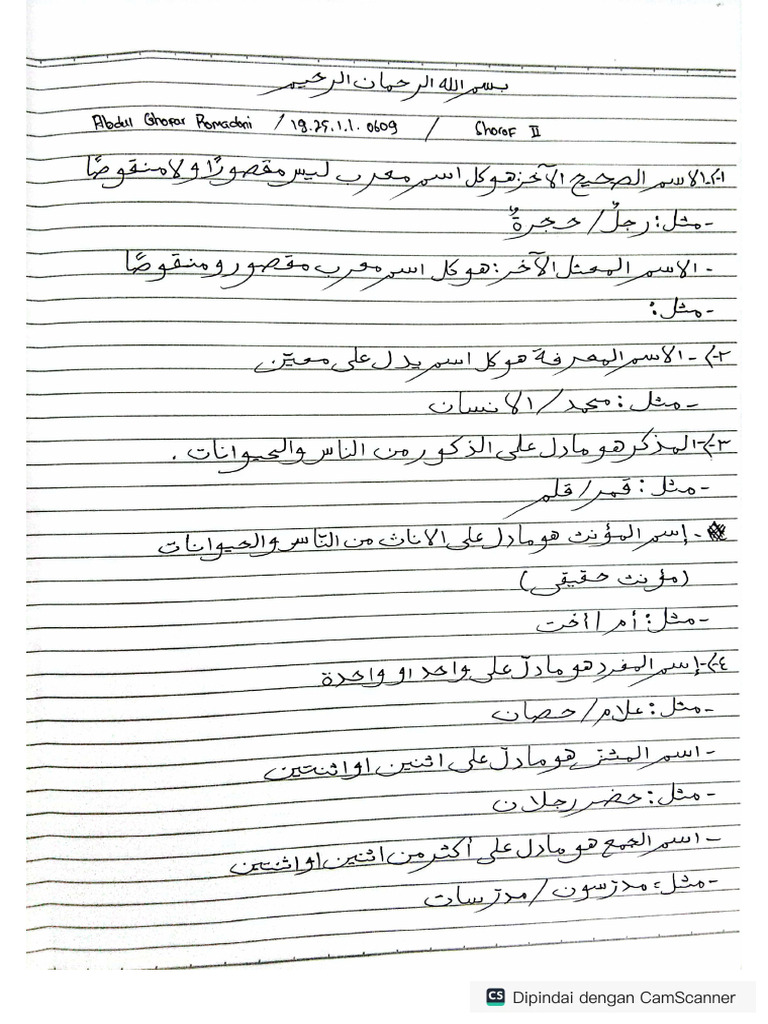 بسم الله الرحمان الرحيم
Abdul Ghofar Romadoni / 19.25.1.1.0609 / Shorof II
١-)-الاسم الصحيح الآخر: هو كل اسم معرب ليس مقصورًا ولا منقوصًا
-مثل: رجلٌ/ حجرةٌ
- الاسم المعتل الآخر: هو كل اسم معرب مقصور ومنقوصًا
-مثل:
٢-)- الاسم المعرفة هو كل اسم يدل على معيّن
-مثل: محمد/ الانسان
٣-)-المذكر هو ما دل على الذكور من الناس والحيوانات .
-مثل: قمر/ قلم
- إسم المؤنث هو ما دل على الاناث من النّاس والحيوانات
(مؤنث حقيقي)
-مثل: أم / أخت
٤-)-إسم المفرد هو ما دلّ على واحد او واحدة
-مثل: علام/ حصان
- اسم المثنّى هو ما دلّ على اثنين او اثنتين
-مثل: حضر رجلان
- اسم الجمع هو ما دل على أكثر من اثنين او اثنتين
-مثل: مدرّسون/ مدرّسات
CS Dipindai dengan CamScanner